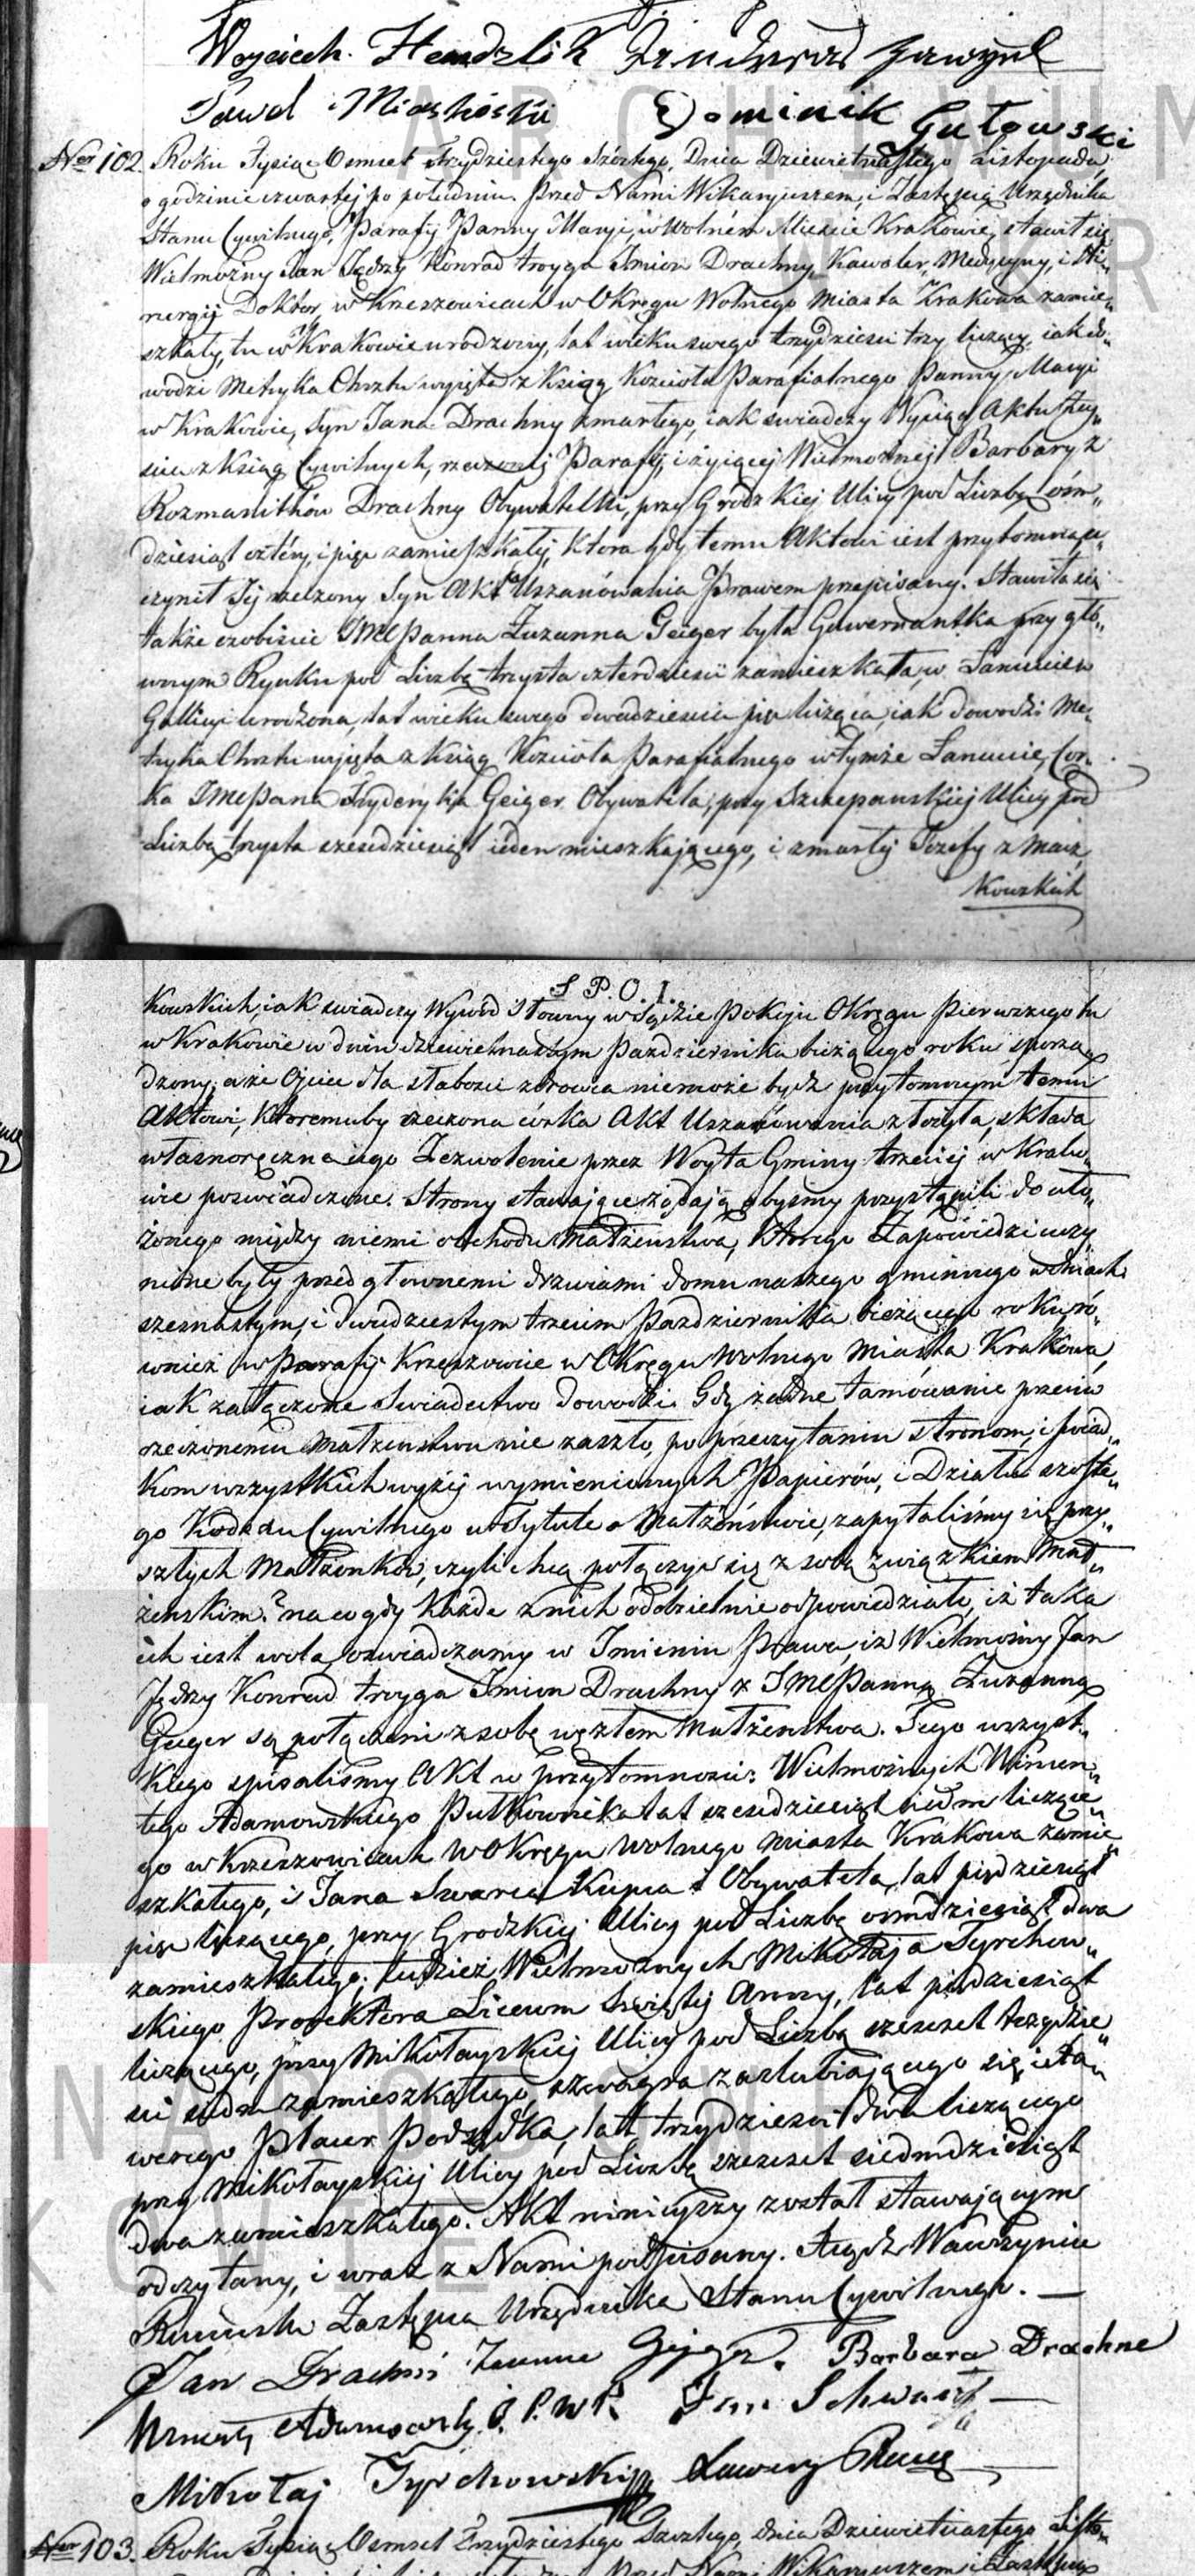 Wojciech Hendzlik
Paweł Dominik Gutowski
Ner 102. Roku Tysiąc Osmset Trzydziestego Szóstego, Dnia Dziewiętnastego Listopada,
o godzinie czwartej po południu. Przed Nami Wikaryuszem, i Zastępcą Urzędnika
Stanu Cywilnego, Parafij Panny Maryi, w Wolném Mieście Krakowie, stawił się
Wielmożny Jan Jędrzy Konrad troyga Imion Drachny, Kawaler, Medycyny, i Hi„
rurgij Doktor, w Krzeszowicach w Okręgu Wolnego Miasta Krakowa zamie„
szkały, tu w Krakowie urodzony, lat wieku swego trzydzieści trzy liczący, iak do„
wodzi Metryka Chrztu wyięta z Ksiąg Kościoła Parafialnego Panny Maryi
w Krakowie, Syn Jana Drachny zmarłego, iak swiadczy Wyciąg Aktu Zey„
ścia z Ksiąg Cywilnych, rzeczonej Parafij, i żyiącej Wielmożnej Barbary z
Rozmanithów Drachny Obywatelki, przy Grodzkiej Ulicy pod Liczbą óśm„
dziesiąt cztéry, i pięć zamieszkałej, która gdy temu Aktowi iest przytomną, u„
czynił Jej rzeczony Syn Akt Uszanówania Prawem przepisany. Stawiła się
także osobiście JMCPanna Zuzanna Geiger była Guwernantka przy głó„
wnym Rynku pod Liczbą trzysta czterdzieści zamieszkała, w Łancucie w
Gallicyi urodzona, lat wieku swego dwadzieścia pięć licząca, iak dowodzi Me„
tryka Chrztu wyięta z Ksiąg Kościoła Parafialnego w tymże Łancucie, Cór„
ka JMCPana Fryderyka Geiger Obywatela, przy Szczepanskiej Ulicy pod
Liczbą trzysta sześćdziesiąt ieden mieszkającego, i zmarłej Józefy z Macz„
Kowskich
S P. O. I.
Kowskich, iak swiadczy Wywód Słowny w Sądzie Pokoju Okręgu Pierwszego tu
w Krakowie w dniu dziewiętnastym Października bieżącego roku sporzą„
dzony; a że Ojciec dla słabości zdrowia niemoże bydź przytomnym temu
Aktowi, któremuby rzeczona córka Akt Uszanówania złożyła, składa
własnoręczne iego Zezwolenie przez Wóyta Gminy trzeciej w Krako„
wie poswiadczone. Strony stawające żądają abysmy przystąpili do uło„
żonego między niemi obchodu Małżeństwa, którego Zapowiedzi uczy„
nione były przed głownemi drzwiami domu naszego gminnego w dniach
szesnastym, i dwudziestym trzecim Października bieżącego roku, ró„
wnież w Parafij Krzeszowice w Okręgu Wolnego Miasta Krakowa,
iak załączone Swiadectwo dowodzi. Gdy żadne tamówanie przeciw
rzeczonemu Małżeństwu nie zaszło, po przeczytaniu stronom, i swiad„
kom wszystkich wyżéj wymienionych Papierów, i Działu szóste„
go Kodexu Cywilnego w Tytule o Małżeństwie, zapytaliśmy się przy„
szłych Małżonków, czyli chcą połączyć się z sobą związkiem Mał„
żenskim? na co gdy każde z nich oddzielnie odpowiedziało, iż taka
ich iest wola, oswiadczamy w Imieniu Prawa, iż Wielmożny Jan
Jędrzy Konrad troyga Imion Drachny z JMCPanną Zuzanną
Geiger są połączeni z sobą węzłem Małżeństwa. Tego wszyst„
kiego spisaliśmy Akt w przytomności: Wielmożnych Wincen„
tego Adamowskiego Pułkownika lat sześćdziesiąt siedm liczące„
go w Krzeszowicach w Okręgu Wolnego Miasta Krakowa zamie„
szkałego, i Jana Szwarca Kupca i Obywatela, lat pięćdziesiąt
pięć liczącego, przy Grodzkiej Ulicy pod Liczbą osmdziesiąt dwa
zamieszkałego; tudzież Wielmożnych Mikołaja Tyrchow„
skiego Prorektora Liceum Swiętej Anny, lat pięćdziesiąt
liczącego, przy Mikołayskiej Ulicy pod Liczbą sześćset trzydzie„
ści siedm zamieszkałego, szwagra zaslubiającego się, i Xa„
werego Placer Podsędka, lat trzydzieści dwa liczącego
przy Mikołayskiej Ulicy pod Liczbą sześćset siedmdziesiąt
dwa zamieszkałego. Akt ninieyszy został stawającym
odczytany, i wraz z Nami podpisany. Xiądz Wawrzyniec
Zastępca Urzędnika Stanu Cywilnego.
Jan Drachni Barbara Drachne
Jan Schwartz
Mikołaj Tyrchowski
Ner 103. Roku Tysiąc Osmset Trzydziestego Szóstego, Dnia Dziewiętnastego Listo„
ARCHIWUM
W KR
NARODOWE
KOWIE